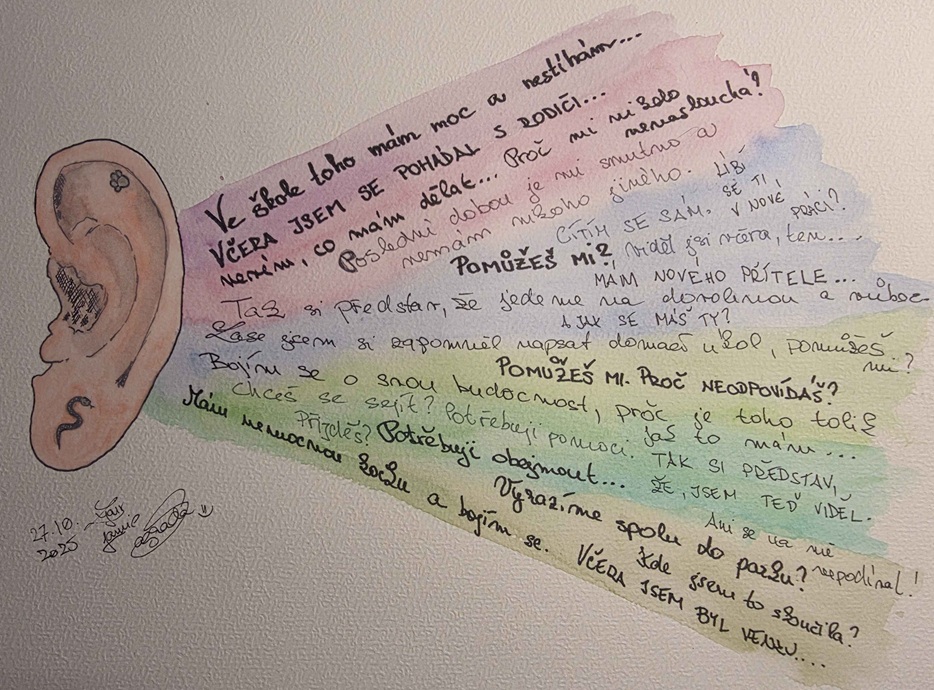 Ve škole toho mám moc a nestíhám...
VČERA JSEM SE POHÁDAL S RODIČI...
nevím, co mám dělat... Proč mi nikdo nenaslouchá?
Poslední dobou je mi smutno a
nemám nikoho jiného.
LÍBÍ
SE TI
V NOVÉ
PRÁCI?
CÍTÍM SE SÁM.
POMŮŽEŠ MI?
viděl jsi včera, ten....
MÁM NOVÉHO PŘÍTELE...
Tak si představ, že jedeme na dovolenou a vůbec
A JAK SE MÁŠ TY?
Zase jsem si zapomněl napsat domácí úkol, pomůžeš
mi?
POMŮŽEŠ MI. PROČ NEODPOVÍDÁŠ?
Bojím se o svou budocnost, proč je toho tolik
Chceš se sejít? Potřebuji pomoci. Jak to mám...
Přijdeš? Potřebuji obejmout... TAK SI PŘEDSTAV,
ŽE, JSEM TEĎ VIDĚL.
Mám nemocnou kočku a bojím se.
Vyrazíme spolu do parku?
Ani se na mě
nepodíval!
Kde jsem to skončila?
VČERA JSEM BYL VENKU....
27.10.
2025